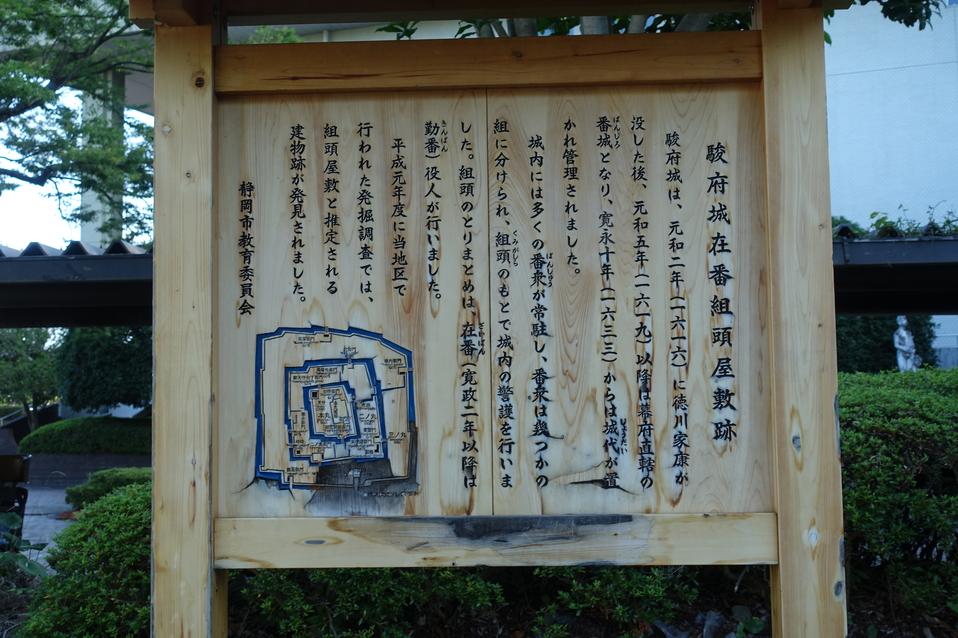 駿府城在番組頭屋敷跡
駿府城は、元和二年(一六一六)に徳川家康が
没した後、元和五年(一六一九)以降は幕府直轄の
番城となり、寛永十年(一六三三)からは城代が置
かれ管理されました。
城内には多くの番衆が常駐し、番衆は幾つかの
組に分けられ、組頭のもとで城内の警護を行いま
した。組頭のとりまとめは、在番(寛政二年以降は
勤番)役人が行いました。
平成元年度に当地区で
行われた発掘調査では、
組頭屋敷と推定される
建物跡が発見されました。
静岡市教育委員会
本丸
二ノ丸
三ノ丸